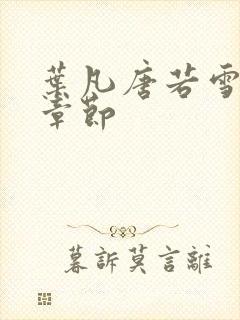 葉凡唐若雪
章節
暮訴莫言離